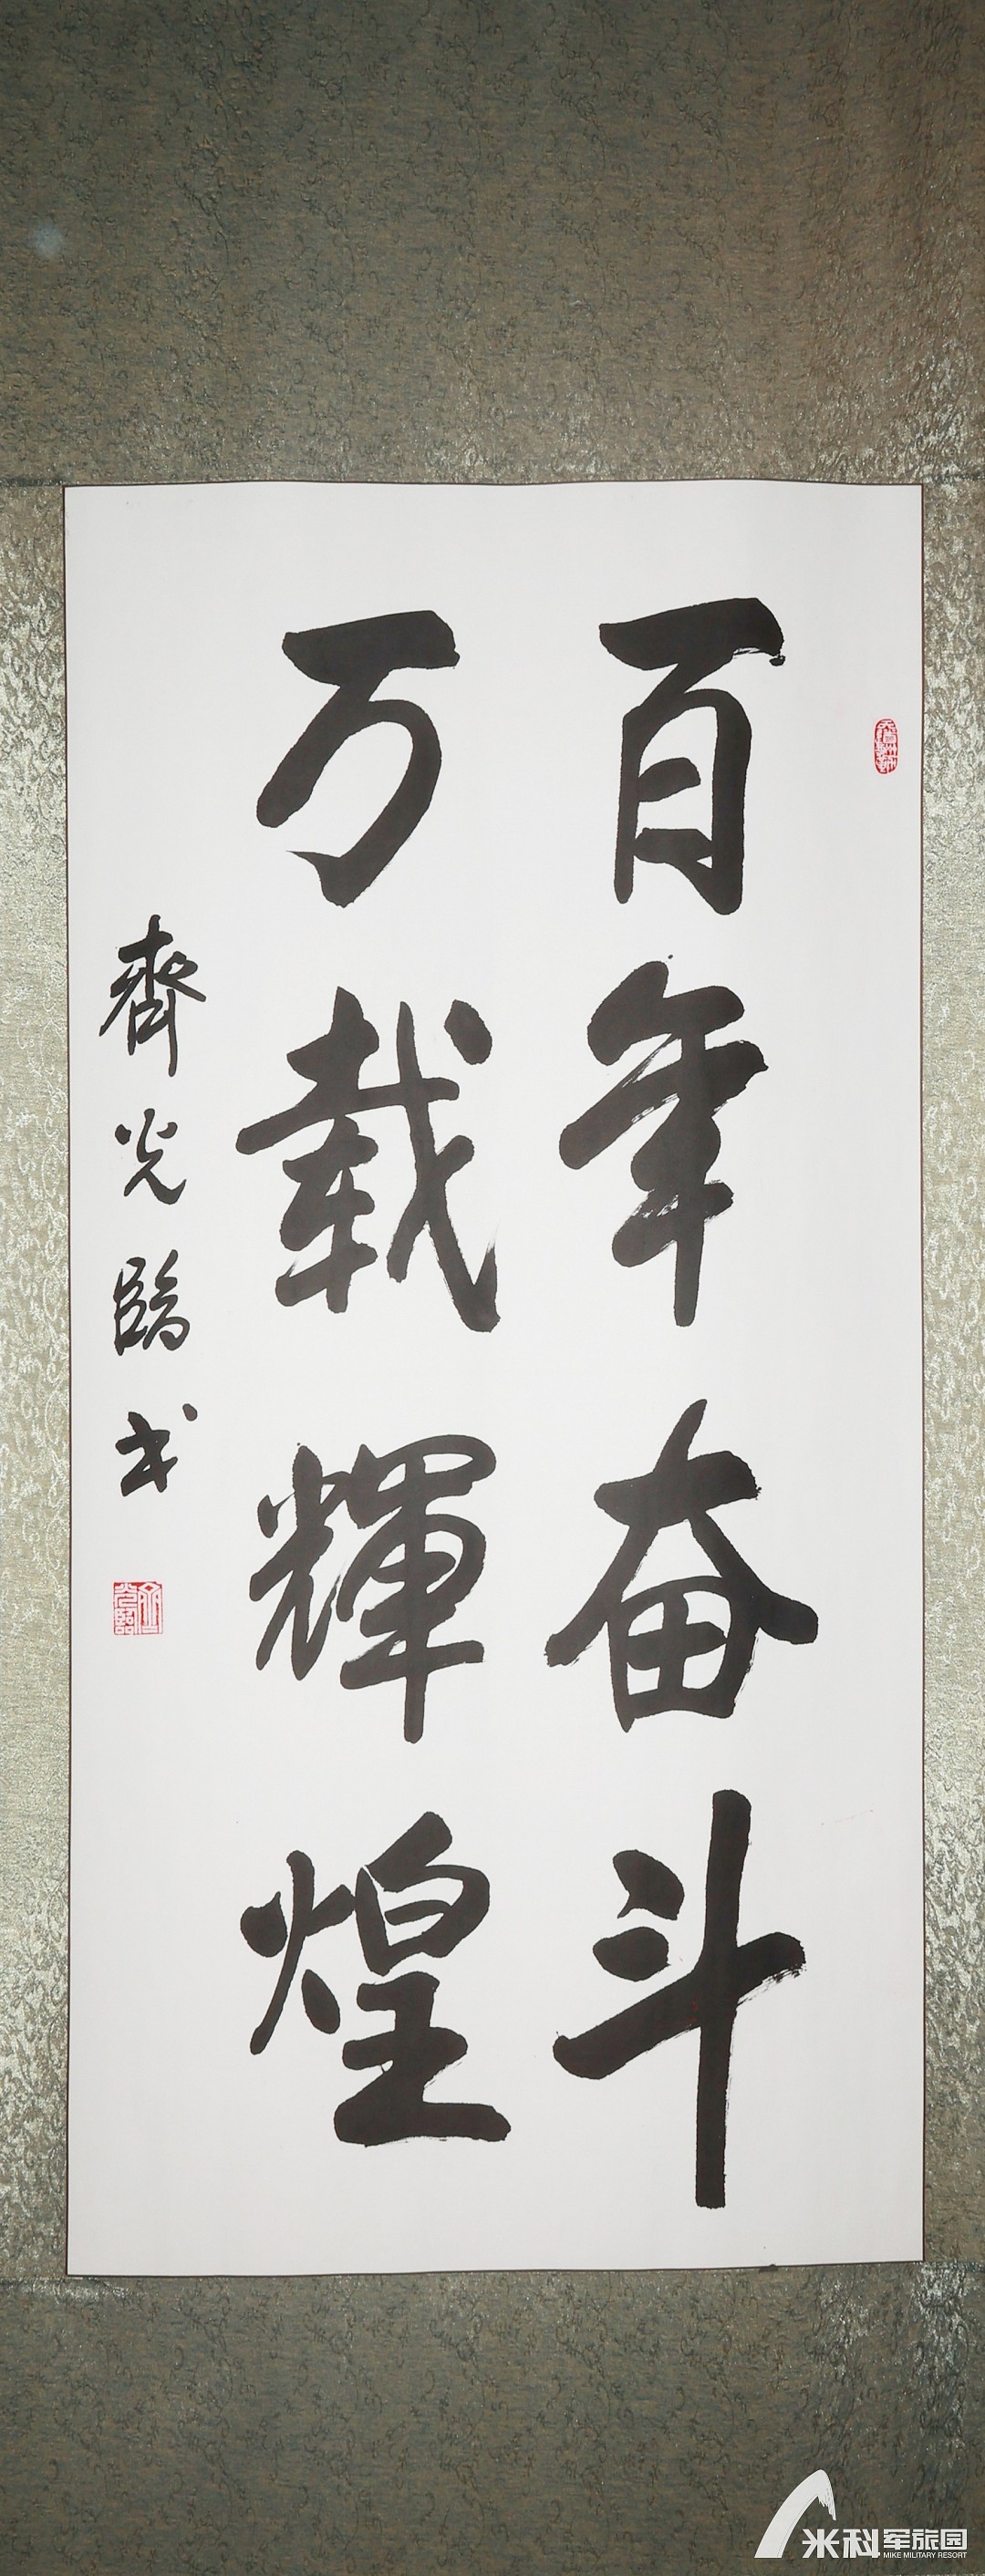 百年奋斗
万载輝煌
齊光臨书
米科军旅园
MIKE MILITARY RESORT